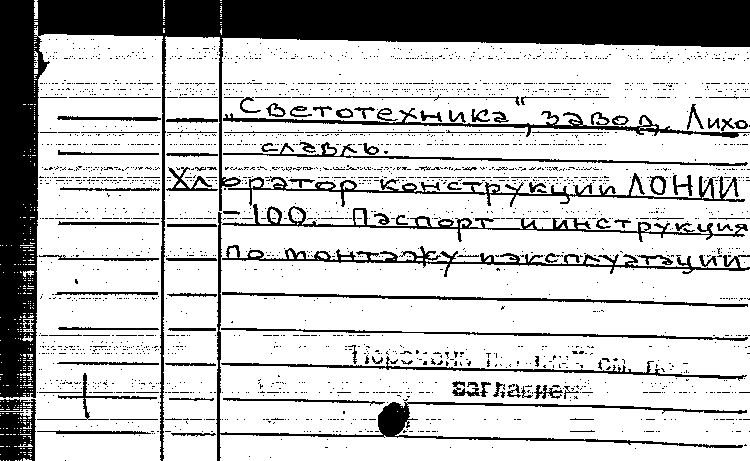 „Светотехника“, завод. Лихо
славль.
Хлоратор конструкции ЛОНИИ
-100. Паспорт и инструкция
по монтажу и эксплуатации
Перечень см. под
заглавием